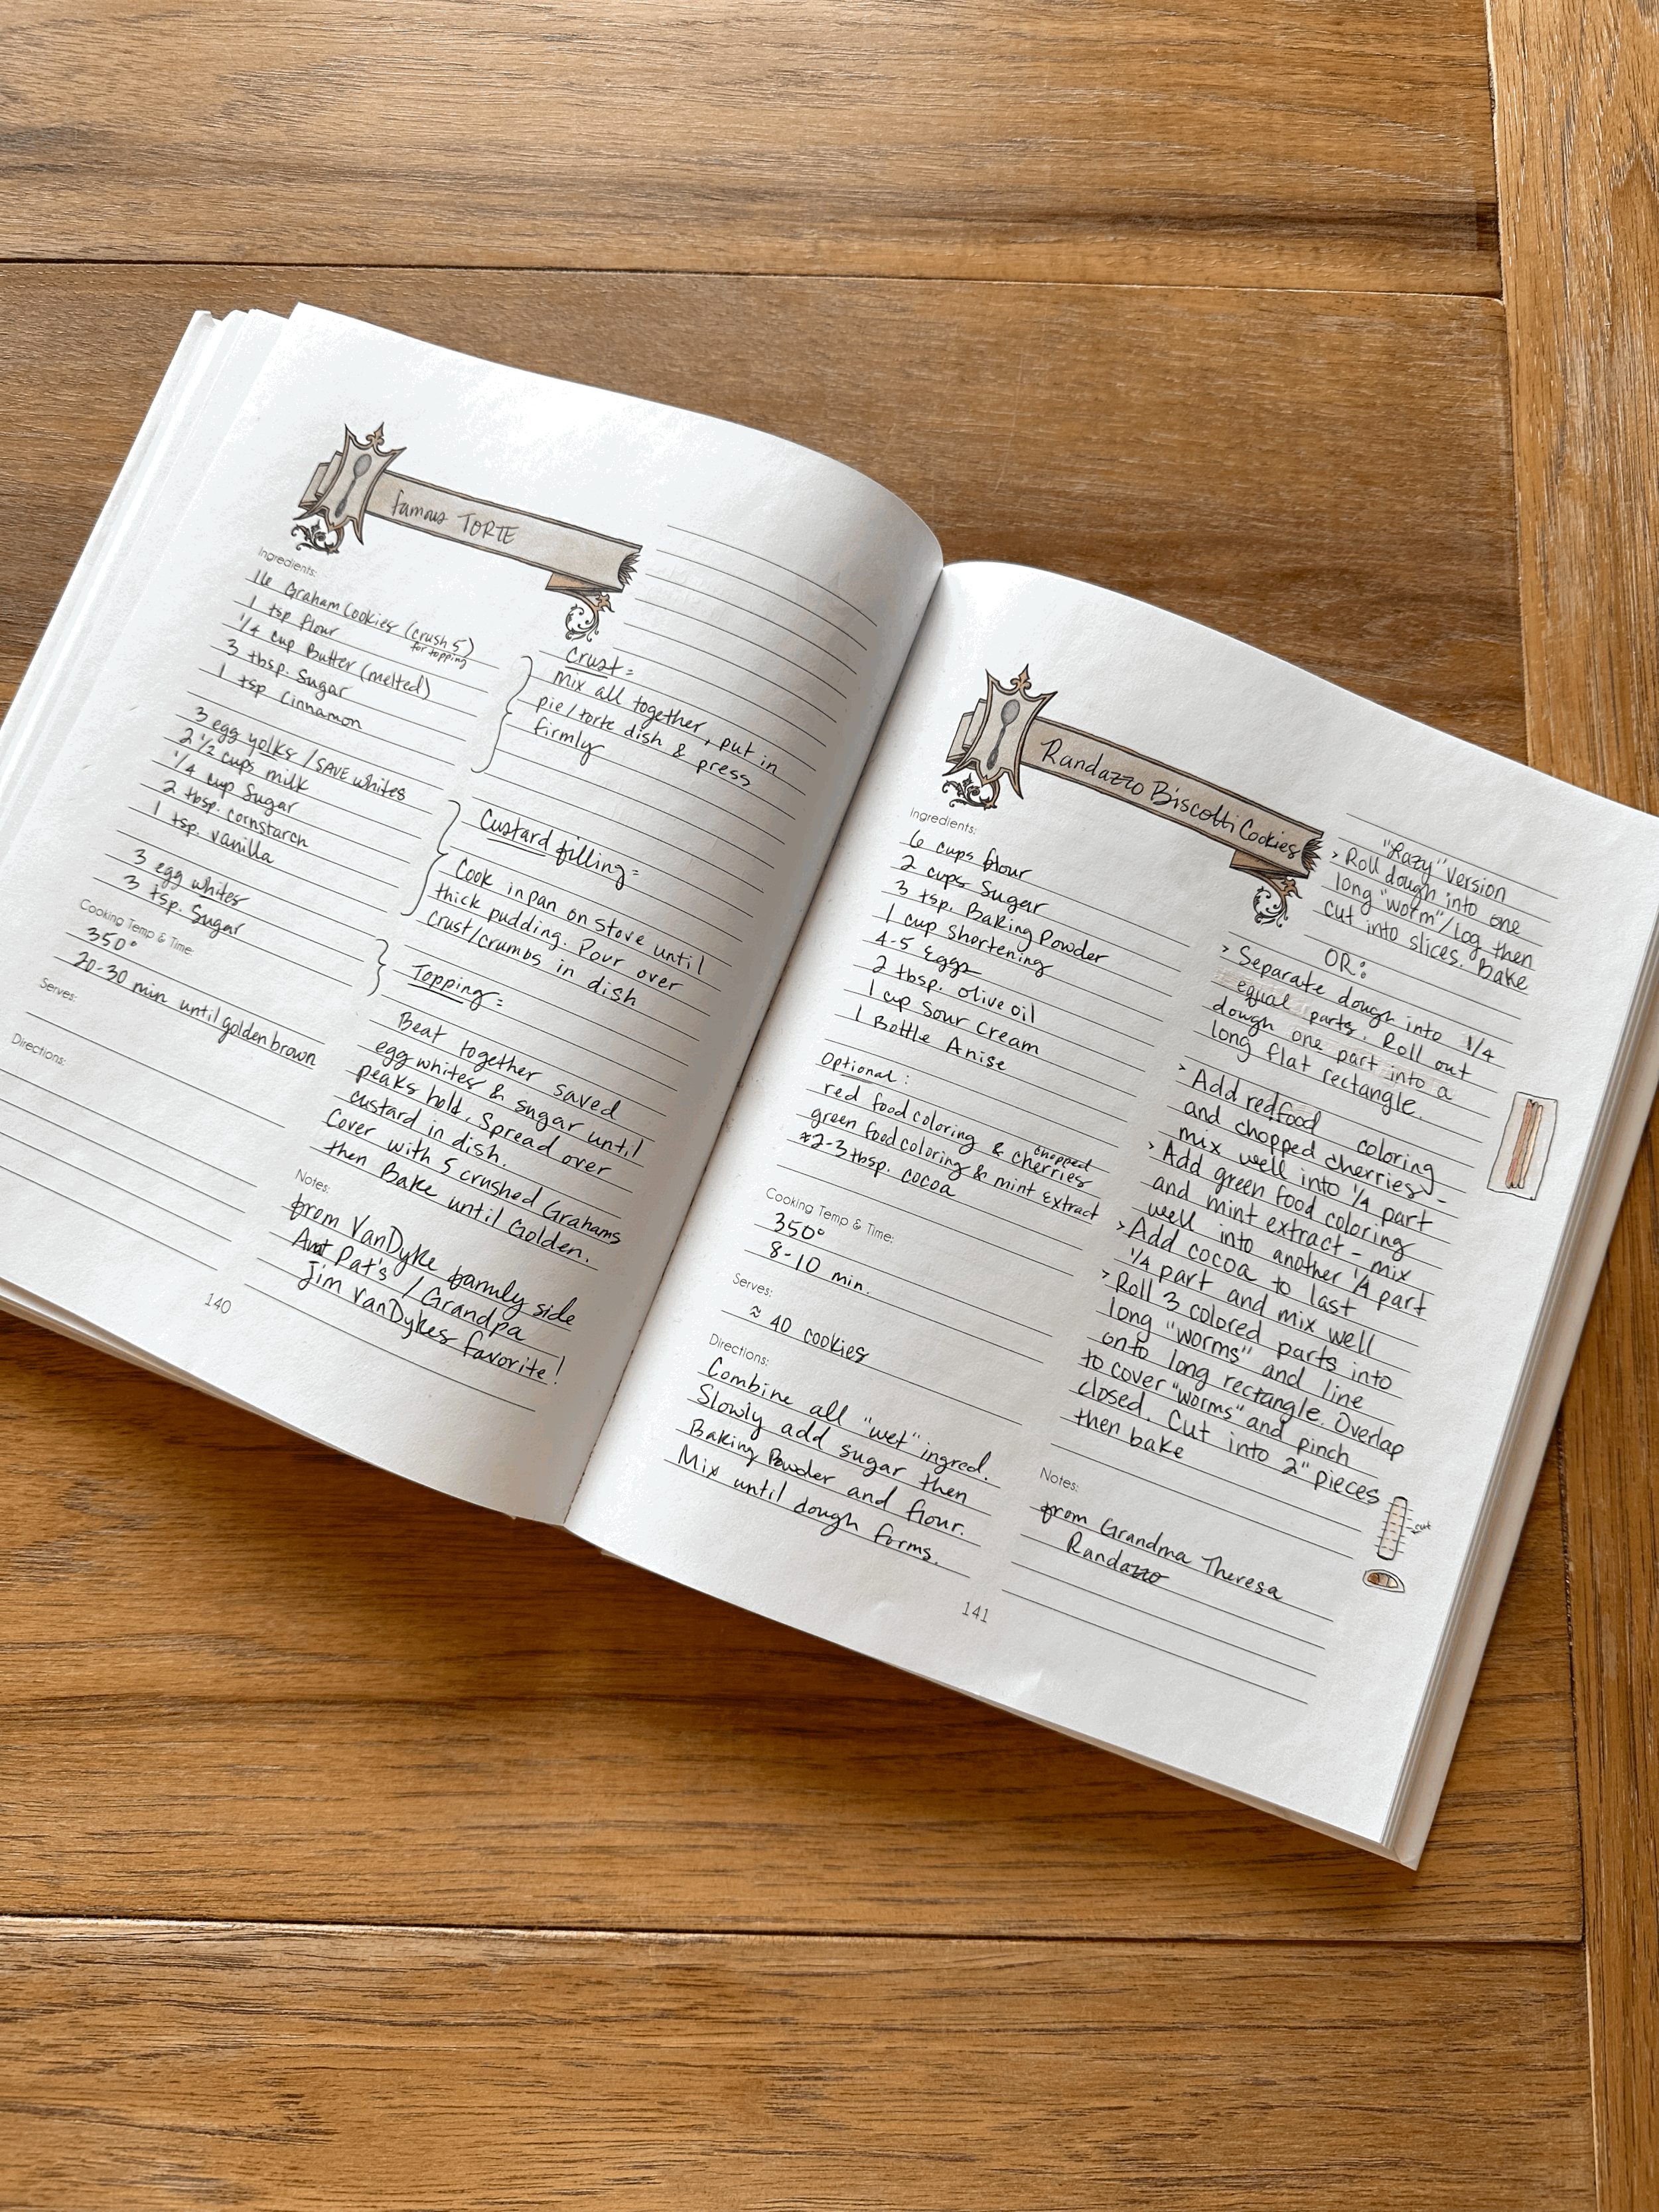 famous TORTE
Ingredients:
16 Graham Cookies (crush 5)
for topping
1 tsp flour
1/4 cup Butter (melted)
3 tbsp. Sugar
1 tsp cinnamon
3 egg yolks / SAVE whites
2 1/2 cups milk
1/4 cup Sugar
2 tbsp. cornstarch
1 tsp. vanilla
3 egg whites
3 tsp. Sugar
Cooking Temp & Time:
350°
20-30 min until golden brown
Serves:
Directions:
Crust:
mix all together, put in
pie/torte dish & press
firmly
Custard filling:
Cook in pan on stove until
thick pudding. Pour over
crust/crumbs in dish
Topping:
Beat together saved
egg whites & sugar until
peaks hold. Spread over
custard in dish.
Cover with 5 crushed Grahams
then Bake until Golden.
Notes:
from VanDyke family side
Aunt Pat's / Grandpa
Jim VanDykes favorite!
140
Randazzo Biscotti Cookies
Ingredients:
6 cups flour
2 cups Sugar
3 tsp. Baking Powder
1 cup shortening
4-5 Eggs
2 tbsp. olive oil
1 cup Sour Cream
1 Bottle Anise
Optional:
red food coloring & chopped cherries
green food coloring & mint extract
≈2-3 tbsp. cocoa
Cooking Temp & Time:
350°
8-10 min.
Serves:
≈ 40 cookies
Directions:
Combine all "wet" ingred.
Slowly add sugar then
Baking Powder and flour.
Mix until dough forms.
"Lazy" Version
> Roll dough into one
long "worm"/log then
cut into slices. Bake
OR:
> Separate dough into 1/4
equal parts. Roll out
dough one part into a
long flat rectangle.
> Add red food coloring
and chopped cherries -
mix well into 1/4 part
> Add green food coloring
and mint extract - mix
well into another 1/4 part
> Add cocoa to last
1/4 part and mix well
> Roll 3 colored parts into
long "worms" and line
onto long rectangle. Overlap
to cover "worms" and pinch
closed. Cut into 2" pieces
then bake
cut
Notes:
from Grandma Theresa
Randazzo
141